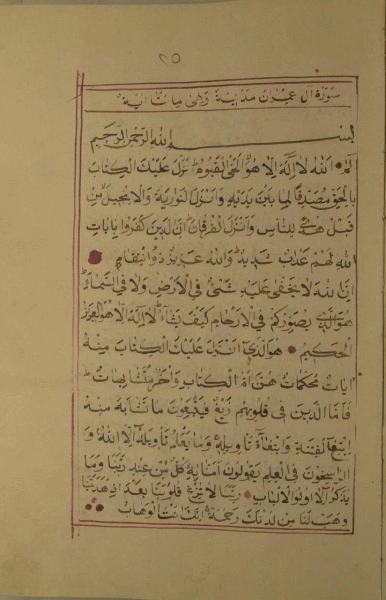 ٢٥
سورة آل عمران مدنية وهى مائتا آية
بسم الله الرحمن الرحيم
الم الله لا اله الا هو الحى القيوم نزل عليك الكتاب
بالحق مصدقا لما بين يديه وانزل التورية والانجيل من
قبل هدى للناس وانزل الفرقان ان الذين كفروا بايات
الله لهم عذاب شديد والله عزيز ذو انتقام
ان الله لا يخفى عليه شئ فى الارض ولا فى السماء
هو الذى يصوركم فى الارحام كيف يشاء لا اله الا هو العزيز
الحكيم هو الذى انزل عليك الكتاب منه
ايات محكمات هن ام الكتاب واخر متشابهات
فاما الذين فى قلوبهم زيغ فيتبعون ما تشابه منه
ابتغاء الفتنة وابتغاء تاويله وما يعلم تاويله الا الله و
الراسخون فى العلم يقولون امنا به كل من عند ربنا وما
يذكر الا اولوا الالباب ربنا لا تزغ قلوبنا بعد اذ هديتنا
وهب لنا من لدنك رحمة انك انت الوهاب